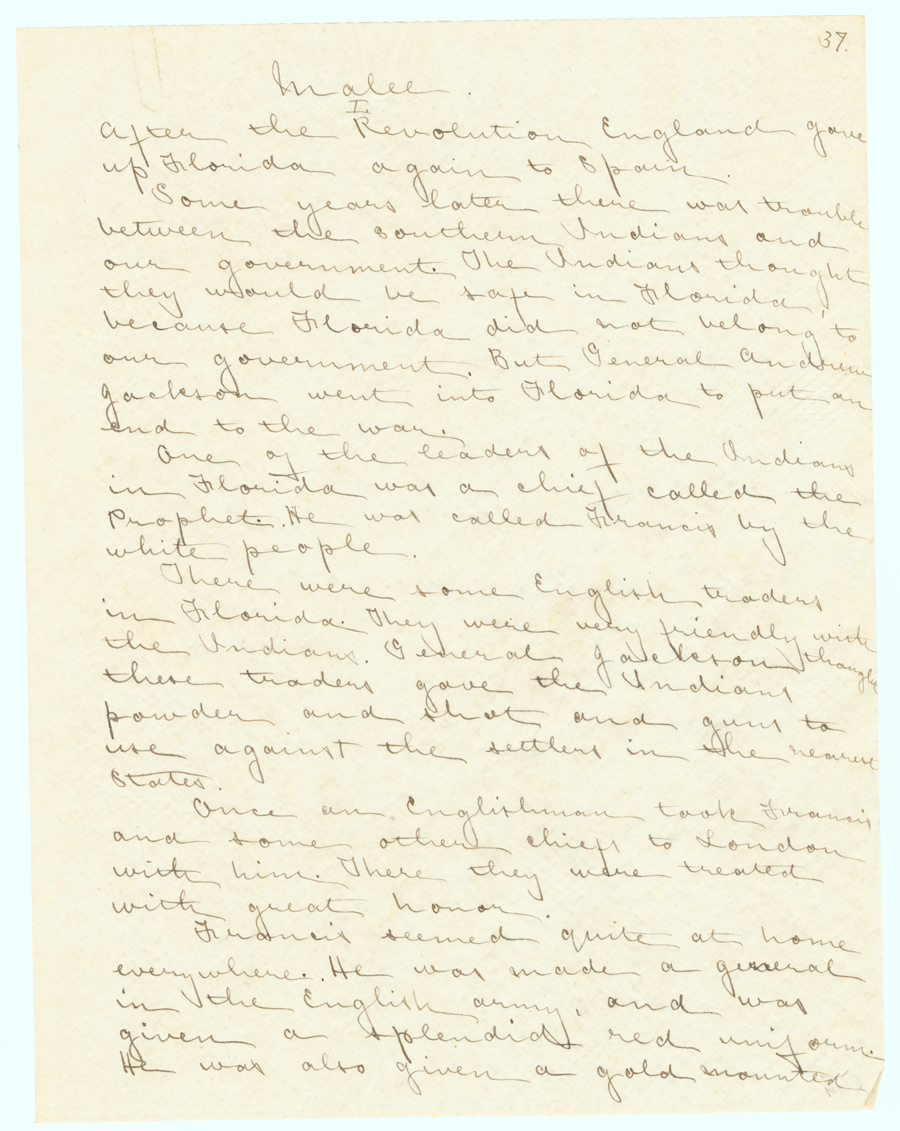 37.
Malee.
I.
After the Revolution England gave
up Florida again to Spain.
Some years later there was trouble
between the southern Indians and
our government. The Indians thought
they would be safe in Florida,
because Florida did not belong to
our government. But General Andrew
Jackson went into Florida to put an
end to the war.
One of the leaders of the Indians
in Florida was a chief called the
Prophet. He was called Francis by the
white people.
There were some English traders
in Florida. They were very friendly with
the Indians. General Jackson thought
these traders gave the Indians
powder and shot and guns to
use against the settlers in the nearest
States.
Once an Englishman took Francis
and some other chiefs to London
with him. There they were treated
with great honor.
Francis seemed quite at home
everywhere. He was made a general
in the English army, and was
given a splendid red uniform.
He was also given a gold mounted